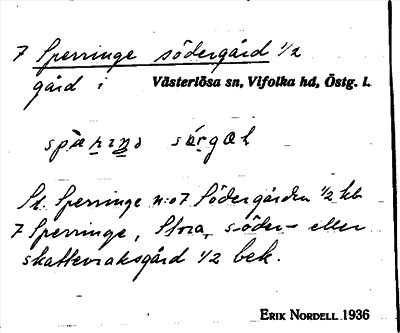 7 Sperringe södergård 1/2
gård i Västerlösa sn, Vifolka hd, Östg. l.
St. Sperringe n:o 7 Södergården 1/2 hb
7 Sperringe, Stora, söder- eller
skattevraksgård 1/2 bek.
ERIK NORDELL 1936